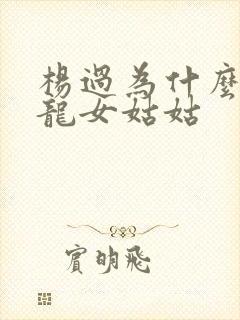 楊過為什麼
龍女姑姑
賓明飛